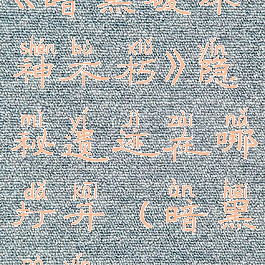 《暗黑破坏
shén bù xiǔ yǐn
神不朽》隐
mì yí jì zài nǎ
秘遗迹在哪
dǎ kāi àn hēi
打开（暗黑